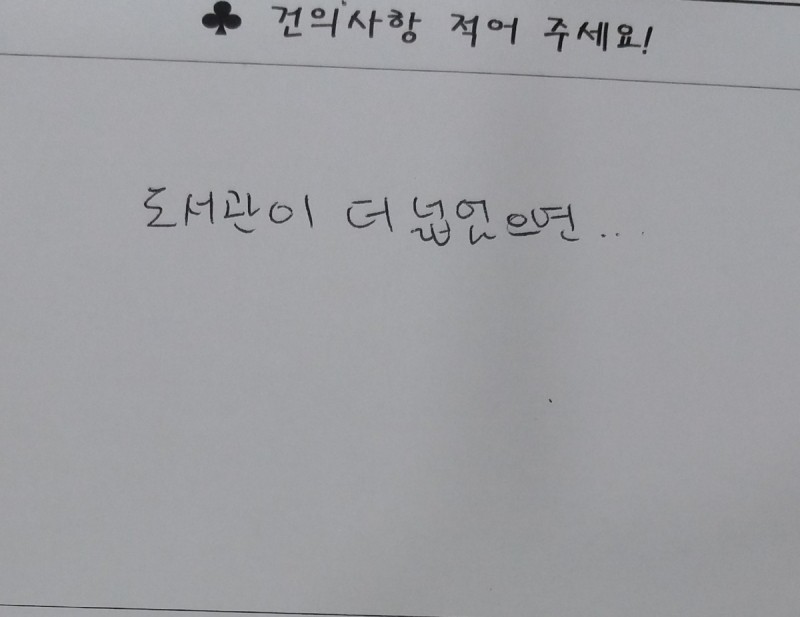 ♣ 건의사항 적어 주세요!
도서관이 더 넓었으면...